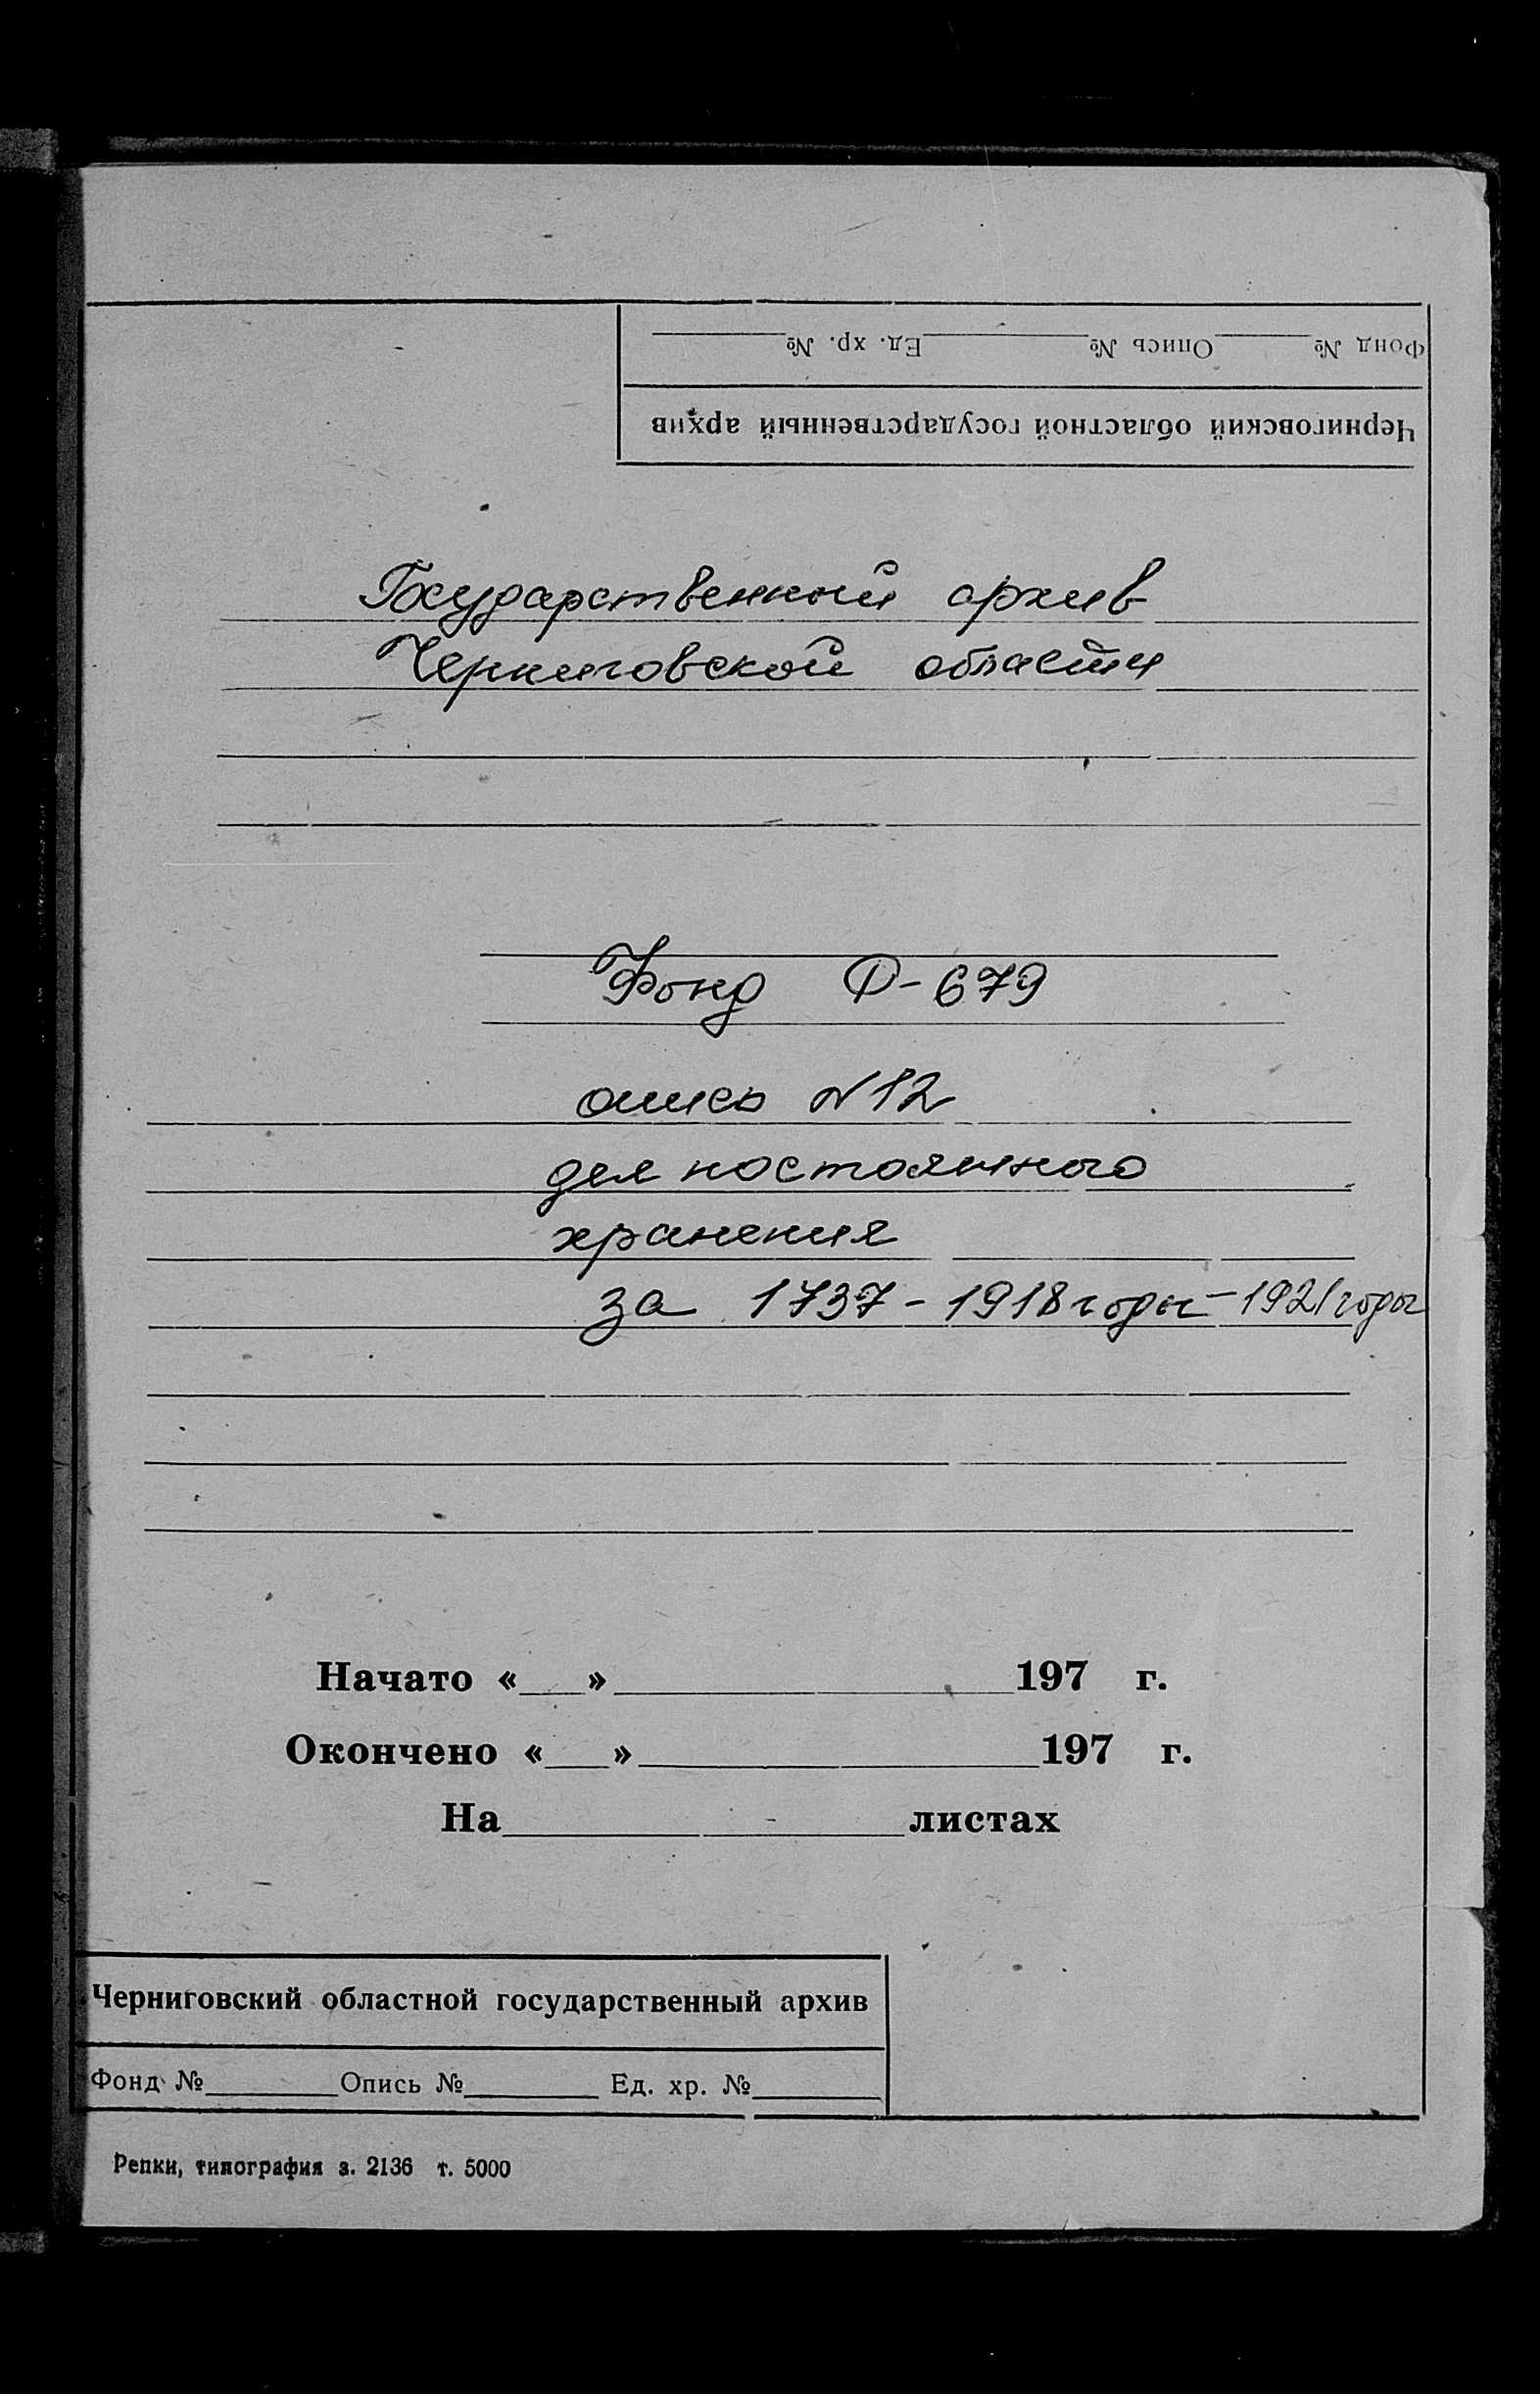 Фонд № Опись № Ед. хр. №
Черниговский областной государственный архив
Государственный архив
Черниговской области
Фонд Ф-679
опись №12
дел постоянного
хранения
за 1737 - 1918 годы - 1921 годы
Начато « » 197 г.
Окончено « » 197 г.
На листах
Черниговский областной государственный архив
Фонд № Опись № Ед. хр. №
Репки, типография з. 2136 т. 5000